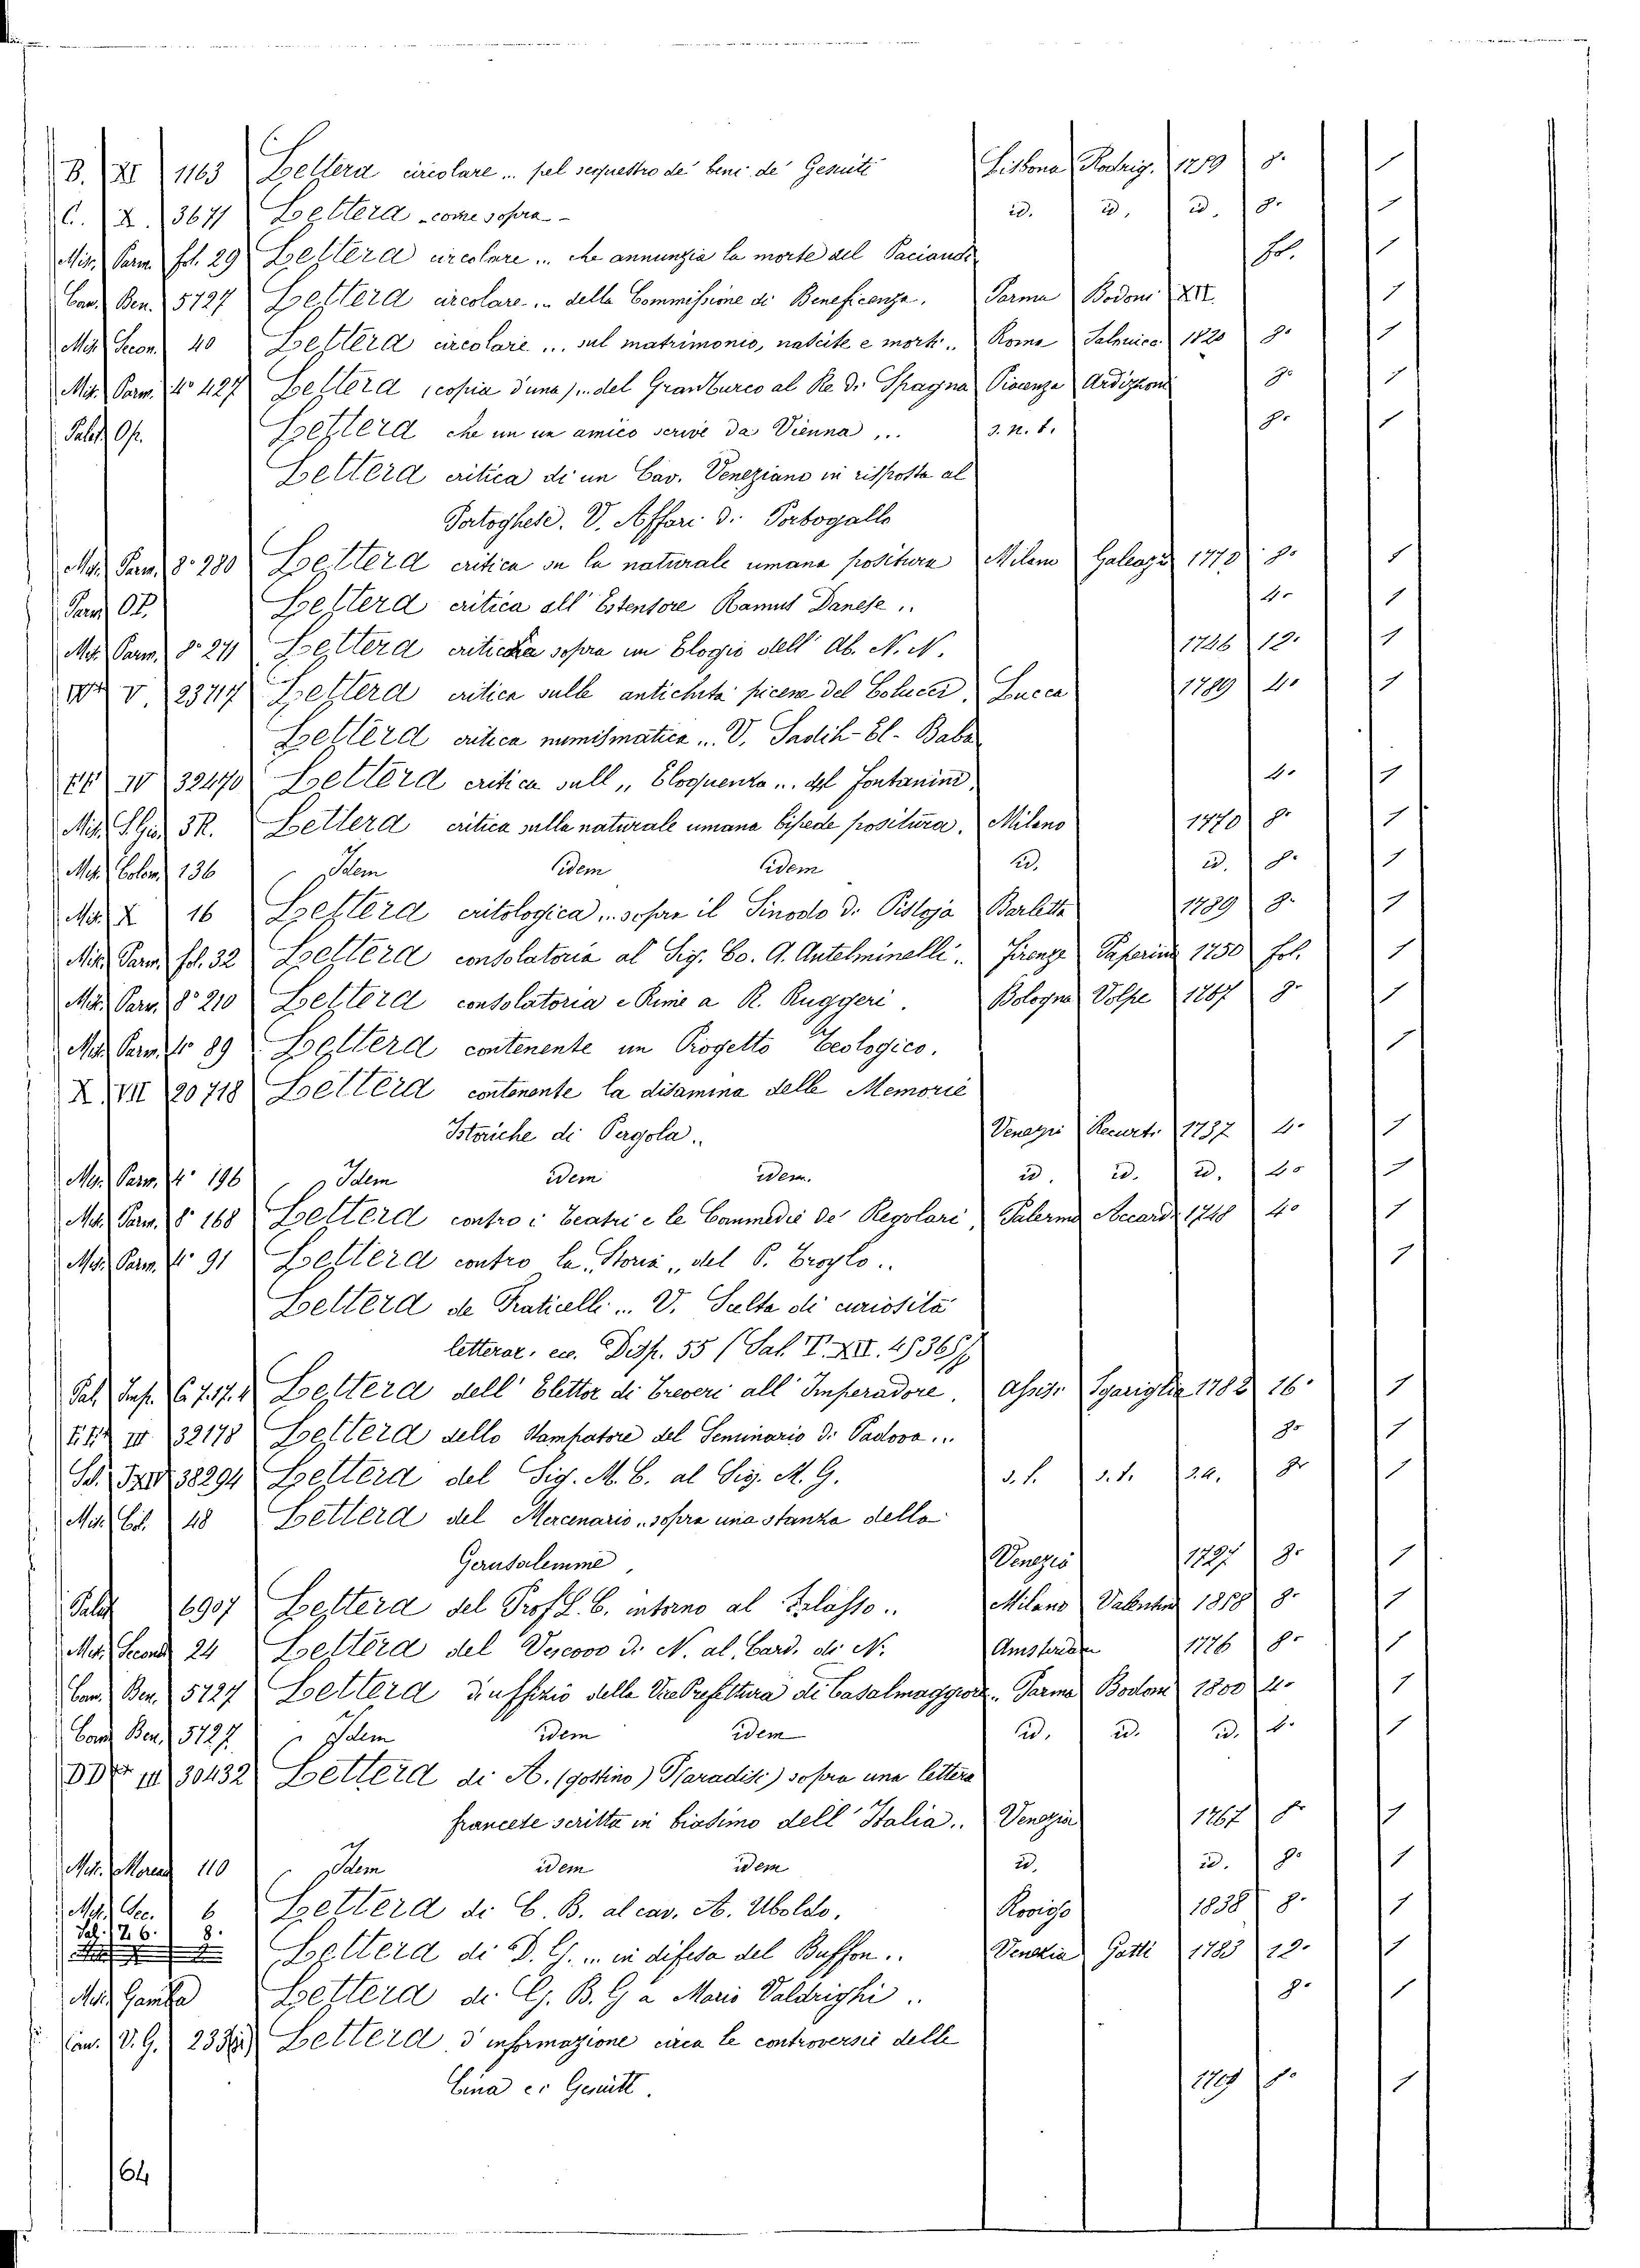 B. XI 1163 Lettera circolare ... pel sequestro de' beni de' Gesuiti Lisbona Rodrig. 1759 8° 1
C. X. 3671 Lettera - come sopra - id. id. id. 8° 1
Mis. Parm. fol. 29 Lettera circolare ... che annunzia la morte del Paciaudi fol. 1
Cam. Ben. 5727 Lettera circolare ... della Commissione di Beneficenza. Parma Bodoni XII. 1
Mis. Secon. 40 Lettera circolare ... sul matrimonio, nascite e morti .. Roma Salviucci 1820 8° 1
Mis. Parm. 4° 427 Lettera (copia d'una) ... del Granturco al Re di Spagna Piacenza Ardizzoni 8° 1
Palat. Op. Lettera che un un amico scrive da Vienna ... s. n. t. 8° 1
Lettera critica di un Cav. Veneziano in risposta al
Portoghese. V. Affari di Portogallo
Mis. Parm. 8° 280 Lettera critica su la naturale umana positura Milano Galeazzi 1770 8° 1
Parm. Op. Lettera critica all' Estensore Ramus Danese .. 4° 1
Mis. Parm. 8° 271 Lettera critica sopra un Elogio dell' Ab. N. N. 1746 12° 1
V 23717 Lettera critica sulle antichità picene del Colucci. Lucca 1789 4° 1
Lettera critica numismatica ... V. Sadik-El-Baba
IV 32470 Lettera critica sull „ Eloquenza „. del Fontanini. 4° 1
Mis. S. Gio. 3R. Lettera critica sulla naturale umana bipede positura. Milano 1770 8° 1
Mis. Colom. 136 Idem idem idem id. id. 8° 1
Mis. X 16 Lettera critologica ... sopra il Sinodo di Pistoja Barletta 1789 8° 1
Mis. Parm. fol. 32 Lettera consolatoria al Sig. Co. A. Antelminelli .. Firenze Paperini 1750 fol. 1
Mis. Parm. 8° 210 Lettera consolatoria e Rime a R. Ruggeri. Bologna Volpe 1767 8° 1
Mis. Parm. 4° 89 Lettera contenente un Progetto Teologico. 1
X. VII 20718 Lettera contenente la disamina delle Memorie
Istoriche di Pergola.. Venezia Recurti 1737 4° 1
Mis. Parm. 4° 196 Idem idem idem. id. id. id. 4° 1
Mis. Parm. 8° 168 Lettera contro i Teatri e le Commedie de' Regolari, Palermo Accardi 1748 4° 1
Mis. Parm. 4° 91 Lettera contro la „Storia „ del P. Troylo .. 1
Lettera de Fraticelli ... V. Scelta di curiosità
letterar. ecc. Disp. 55 (Sal. T. XII. 4536)
Pal. Insp. 6. 7.17.1 Lettera dell' Elettor di Treveri all' Imperadore. Assisi Sgariglia 1782 16° 1
III 32178 Lettera dello Stampatore del Seminario di Padova ... 8° 1
38294 Lettera del Sig. M. C. al Sig. M. G. s. l. s. t. s. a. 8° 1
Mis. 48 Lettera del Mercenario „ sopra una stanza della
Gerusalemme. Venezia 1727 8° 1
Palat. 6907 Lettera del Prof. L. C. intorno al Salasso .. Milano Valentini 1858 8° 1
Mis. Second. 24 Lettera del Vescovo di N. al Card. di N. Amsterdam 1776 8° 1
Cam. Ben. 5727 Lettera d'uffizio della Vice Prefettura di Casalmaggiore .. Parma Bodoni 1800 4° 1
Cam. Ben. 5727. Idem idem idem id. id. id. 4° 1
DD III 30432 Lettera di A. (gostino) P(aradisi) sopra una lettera
francese scritta in biasimo dell' Italia .. Venezia 1767 8° 1
Mis. Moreau 110 Idem idem idem id. id. 8° 1
Mis. Sec. 6 Lettera di C. B. al cav. A. Uboldo. Rovigo 1838 8° 1
Sal. 26. 8. Lettera di D. G. ... in difesa del Buffon .. Venezia Gatti 1783 12° 1
Mis. Gamba Lettera di G. B. G a Mario Valdrighi .. 8° 1
Cam. V. G. 233 Lettera d'informazione circa le controversie delle
Cina ei Gesuiti. 1709 8° 1
64